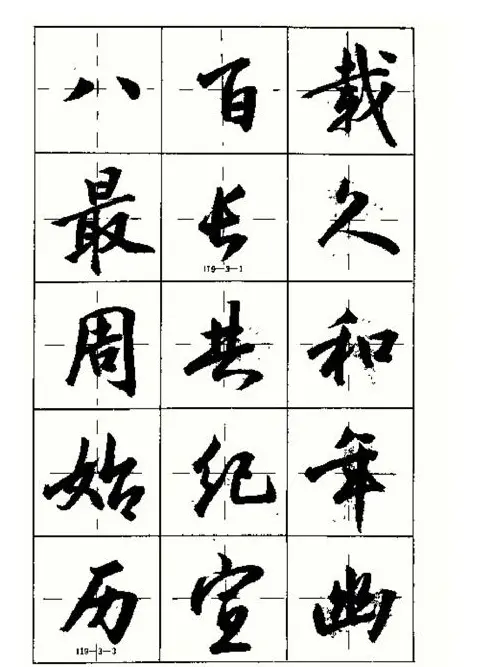 八百载
最长久
179-3-1
周共和
始纪年
历宣幽
119-3-3